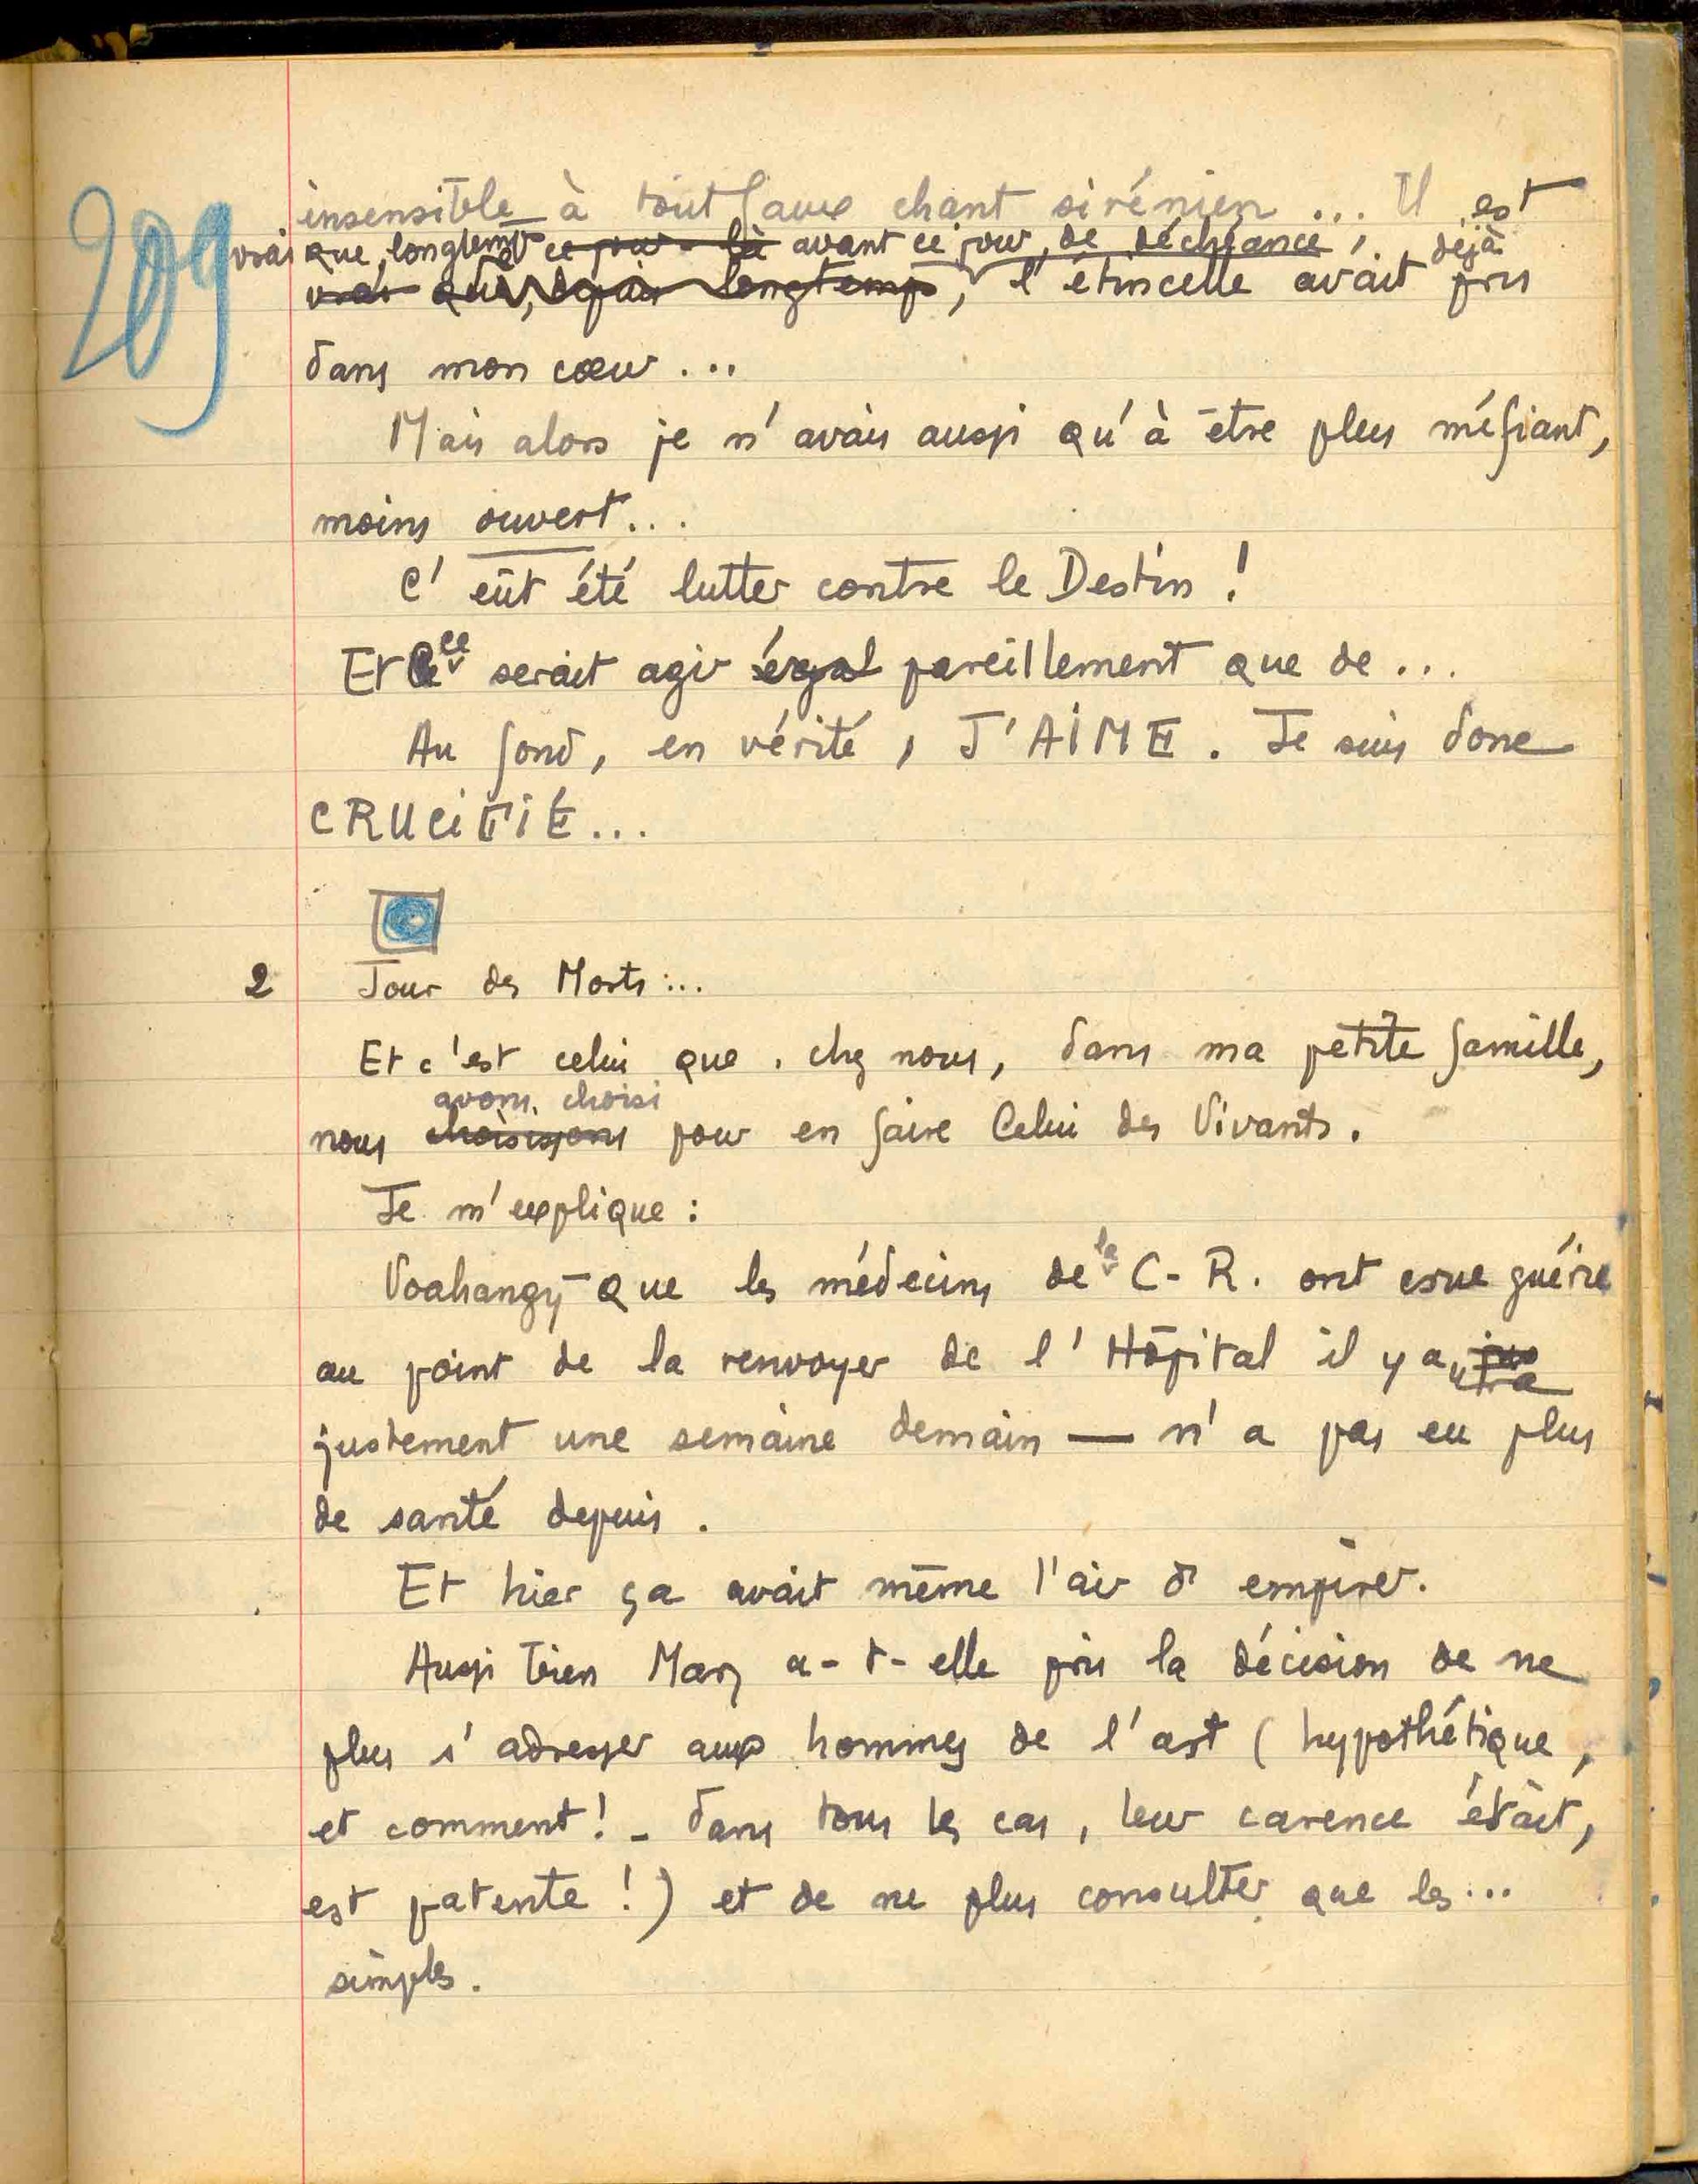 209
insensible à tout faux chant sirénien ... Il est
vrai que, longtemps ce jour-là avant ce jour de déchéance, déjà
vrai que, depuis longtemps, l'étincelle avait pris
dans mon cœur ...
Mais alors je n'avais aussi qu'à être plus méfiant,
moins ouvert...
C'eût été lutter contre le Destin !
Et ce serait agir égal pareillement que de ...
Au fond, en vérité, J'AIME. Je suis donc
CRUCIFIÉ...
2 Jour des Morts :..
Et c'est celui que, chez nous, dans ma petite famille,
avons choisi
nous choisissons pour en faire Celui des Vivants.
Je m'explique :
Voahangy - que les médecins de la C-R. ont crue guérie
au point de la renvoyer de l'Hôpital il y a
justement une semaine demain — n'a pas eu plus
de santé depuis.
Et hier ça avait même l'air d'empirer.
Aussi bien Mary a-t-elle pris la décision de ne
plus s'adresser aux hommes de l'art (hypothétique,
et comment! - dans tous les cas, leur carence était,
est patente !) et de ne plus consulter que les...
simples.